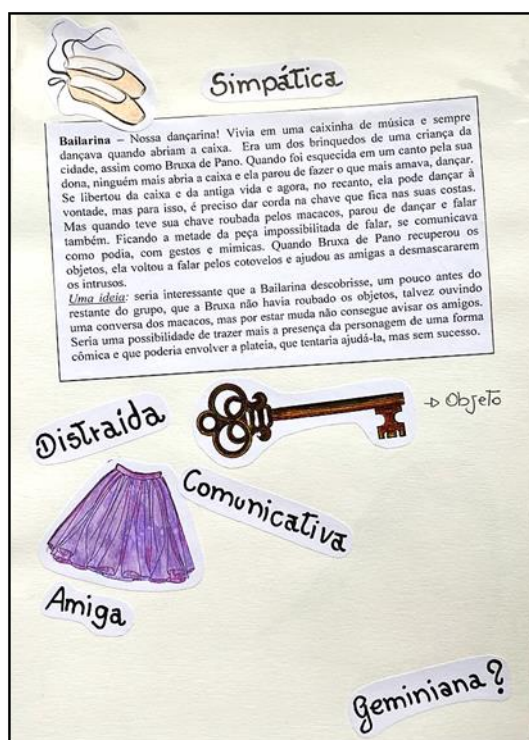 Simpática
Bailarina – Nossa dançarina! Vivia em uma caixinha de música e sempre
dançava quando abriam a caixa. Era um dos brinquedos de uma criança da
cidade, assim como Bruxa de Pano. Quando foi esquecida em um canto pela sua
dona, ninguém mais abria a caixa e ela parou de fazer o que mais amava, dançar.
Se libertou da caixa e da antiga vida e agora, no recanto, ela pode dançar à
vontade, mas para isso, é preciso dar corda na chave que fica nas suas costas.
Mas quando teve sua chave roubada pelos macacos, parou de dançar e falar
também. Ficando a metade da peça impossibilitada de falar, se comunicava
como podia, com gestos e mimicas. Quando Bruxa de Pano recuperou os
objetos, ela voltou a falar pelos cotovelos e ajudou as amigas a desmascararem
os intrusos.
Uma ideia: seria interessante que a Bailarina descobrisse, um pouco antes do
restante do grupo, que a Bruxa não havia roubado os objetos, talvez ouvindo
uma conversa dos macacos, mas por estar muda não consegue avisar os amigos.
Seria uma possibilidade de trazer mais a presença da personagem de uma forma
cômica e que poderia envolver a plateia, que tentaria ajudá-la, mas sem sucesso.
Objeto
Distraída
Comunicativa
Amiga
Geminiana?